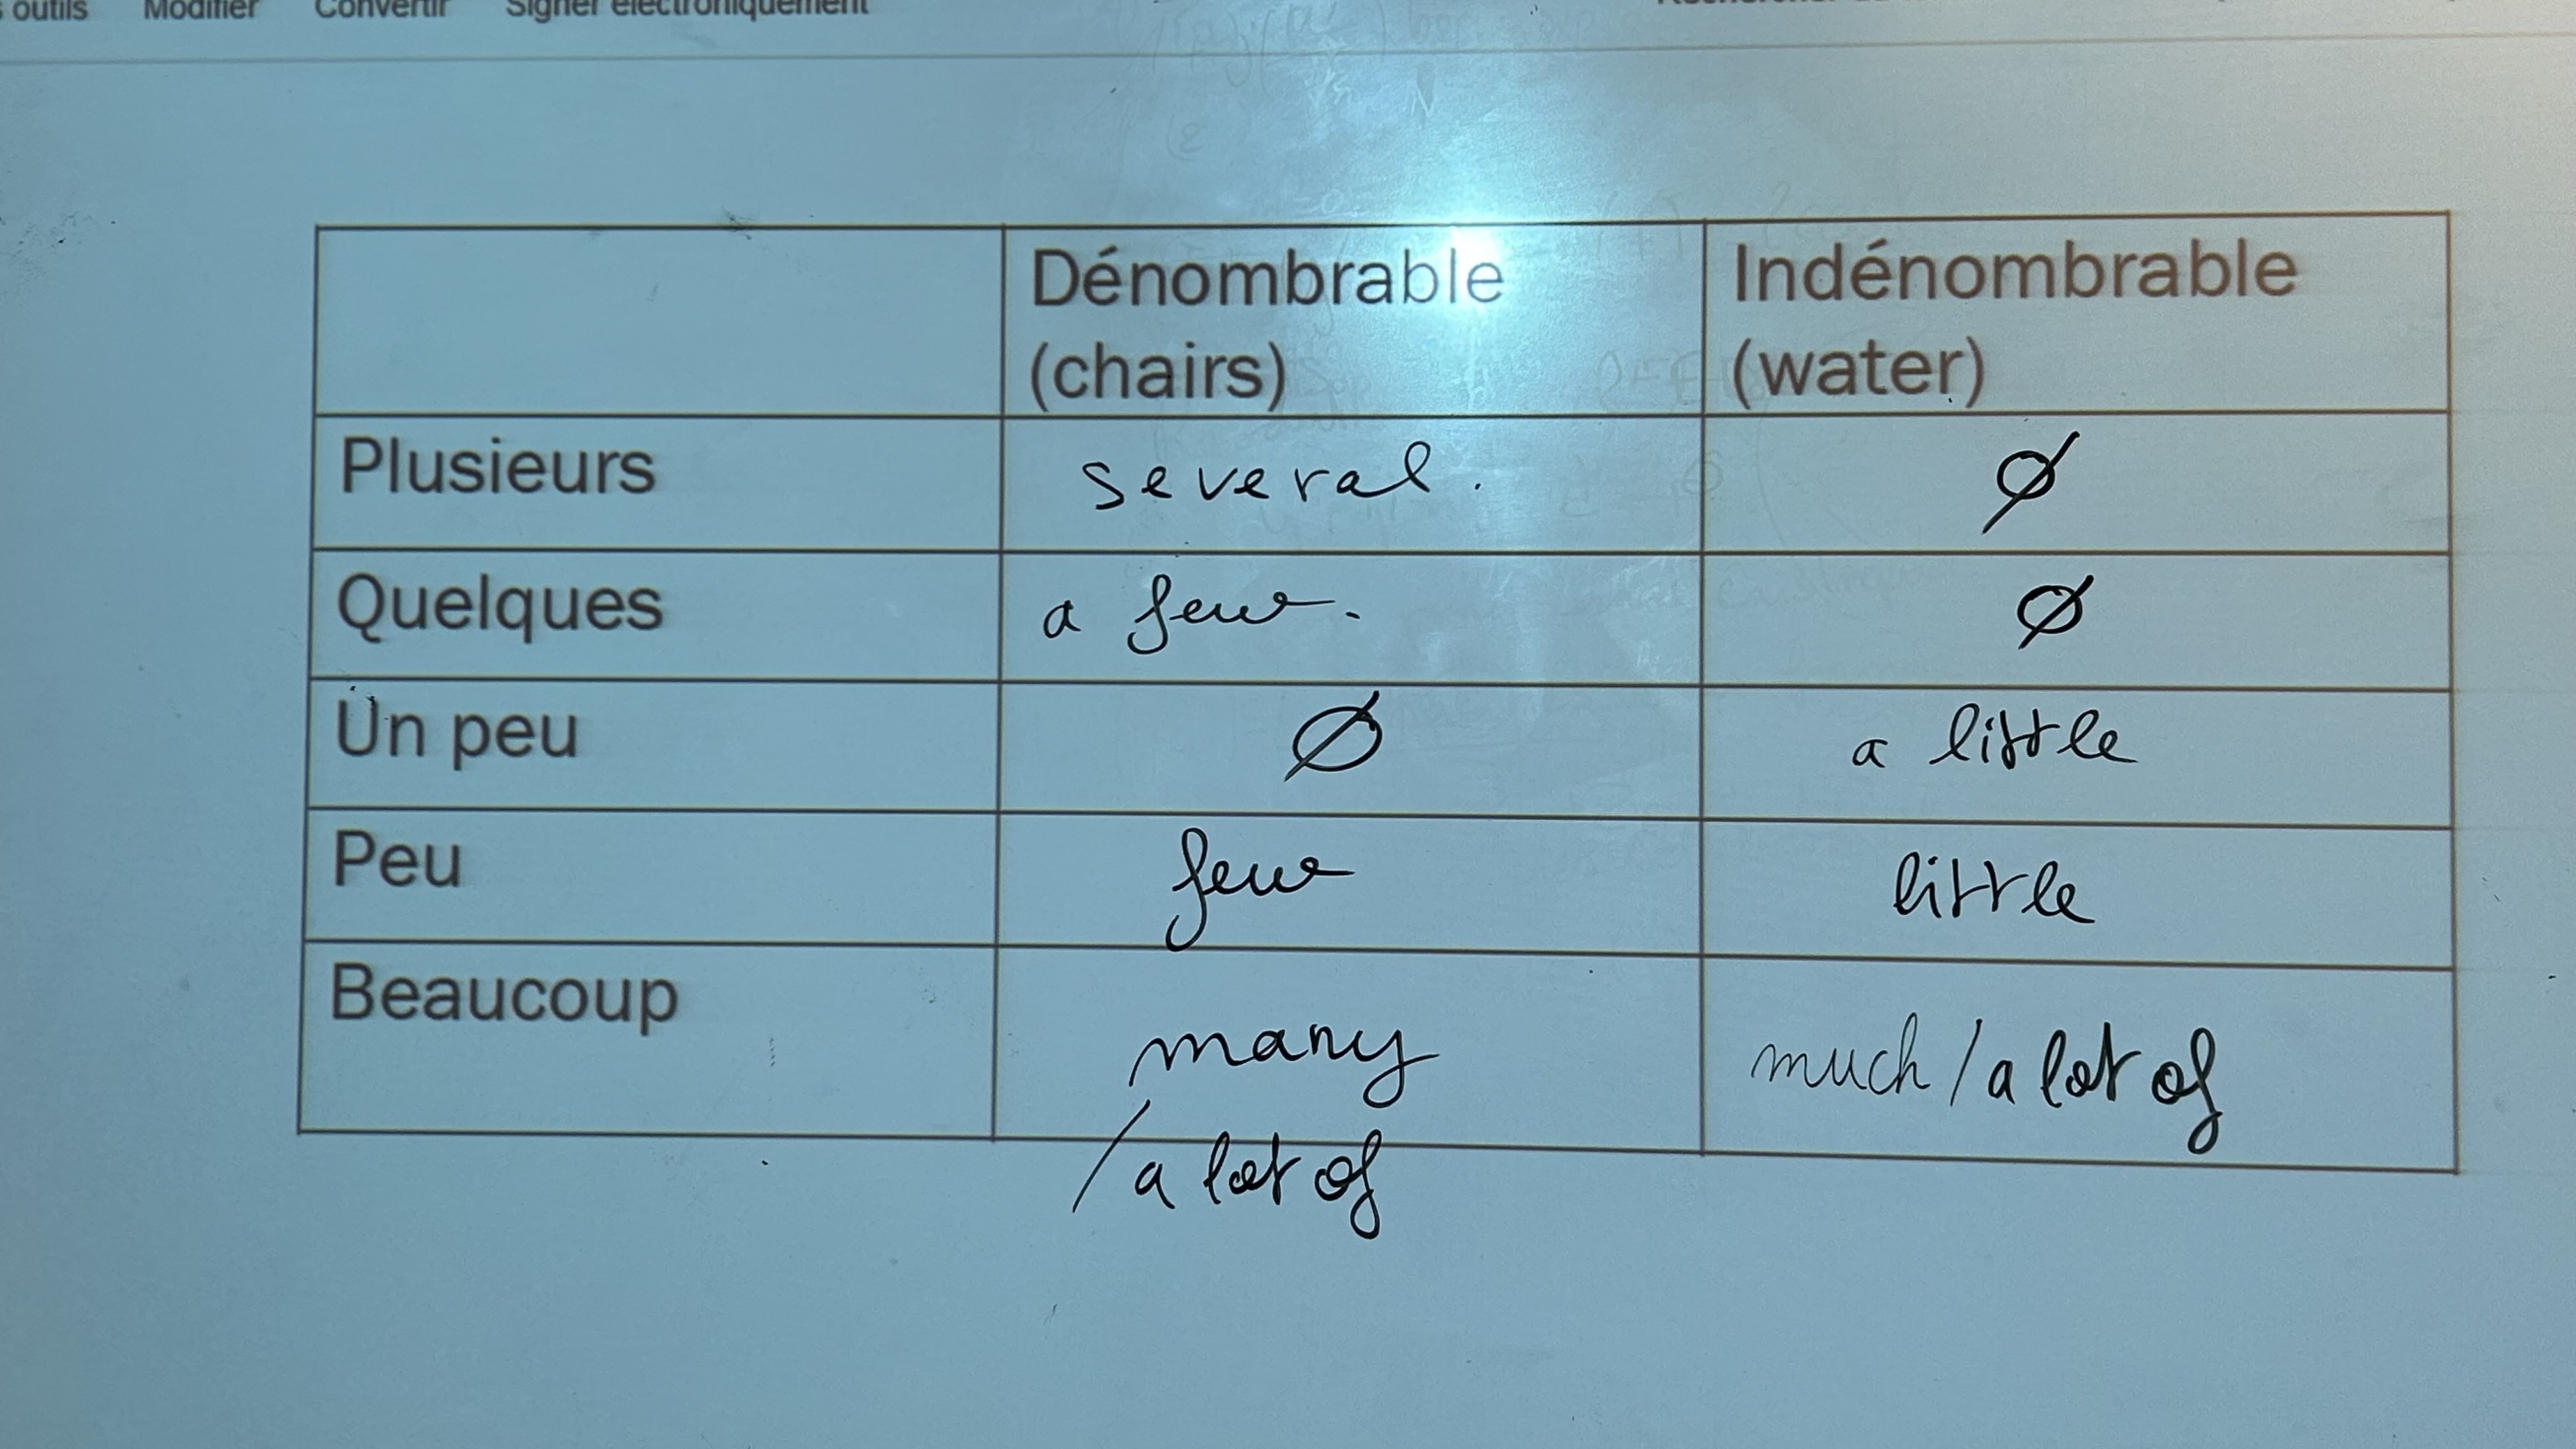 outils Modifier Convertir Signer électroniquement
Dénombrable Indénombrable
(chairs) (water)
Plusieurs several. Ø
Quelques a few. Ø
Un peu Ø a little
Peu few little
Beaucoup many much / a lot of
/ a lot of